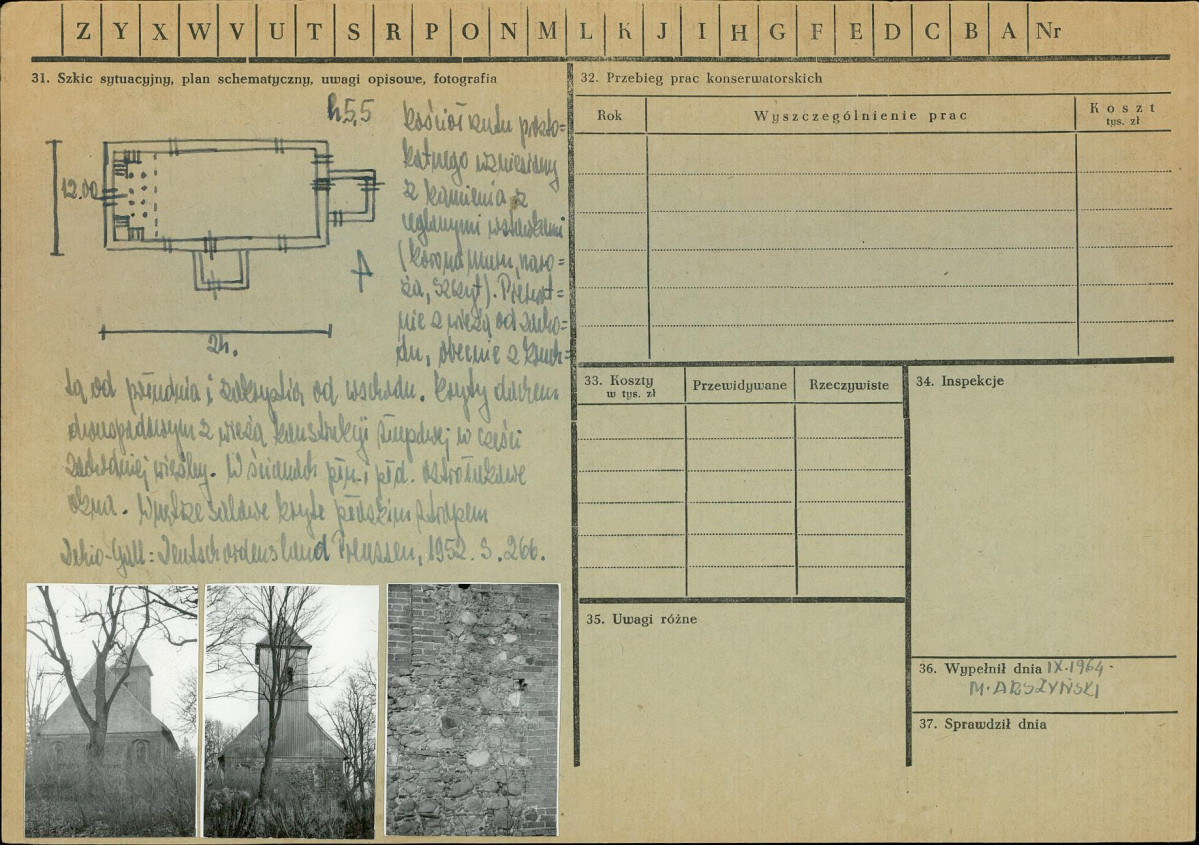 Z Y X W V U T S R P O N M L K J I H G F E D C B A Nr
31. Szkic sytuacyjny, plan schematyczny, uwagi opisowe, fotografia
h 5,5
12.00
24.
Kościół rzutu prosto=
kątnego wzniesiony
z kamienia z
ceglanymi wstawkami
(korona muru, naro=
ża, szczyt). Pierwot=
nie z wieżą od zacho=
du, obecnie z kruch=
tą od południa i zakrystią od wschodu. Kryty dachem
dwuspadowym z wieżą konstrukcji słupowej w części
zachodniej więźby. W ścianach płn. i płd. ostrołukowe
okna. Wnętrze salowe kryte płaskim stropem
Dehio-Gall: Deutschordensland Preussen, 1952. S. 266.
32. Przebieg prac konserwatorskich
Rok Wyszczególnienie prac Koszt
tys. zł
33. Koszty
w tys. zł
Przewidywane Rzeczywiste
34. Inspekcje
35. Uwagi różne
36. Wypełnił dnia IX.1964.
M. ARSZYŃSKI
37. Sprawdził dnia